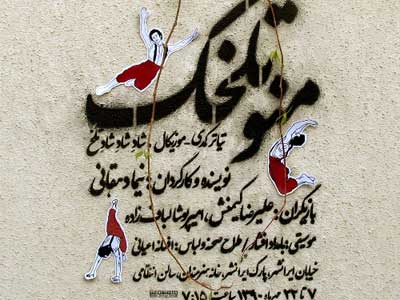 متو تلخک
تئاتر کمدی - موزیکال : شاد شاد شاد تلخ
نویسنده و کارگردان : نیما دهقانی
بازیگران : علیرضا کیمنش، امیر پوشا لباف زاده
موسیقی : بامداد افشار / طراح صحنه و لباس : افسانه اعیانی
خیابان ایرانشهر، پارک ایرانشهر، خانه هنرمندان، سالن انتظامی
۷ تا ۲۳ مهرماه ۱۳۹۰ ساعت ۷:۱۵